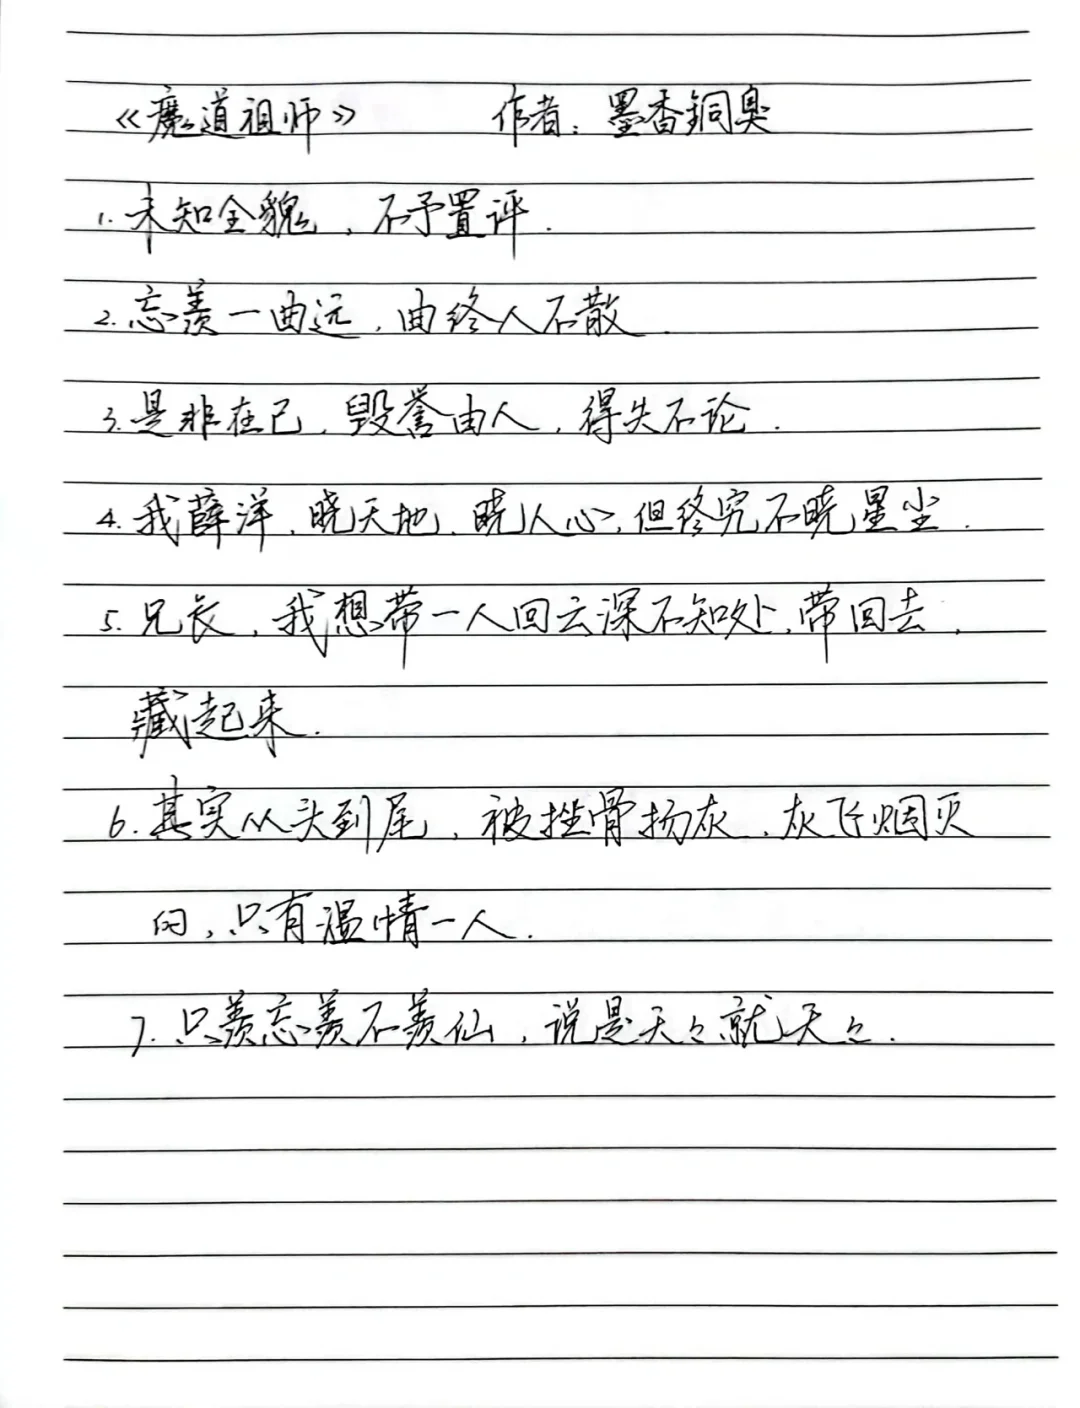 《魔道祖师》 作者：墨香铜臭
1.未知全貌，不予置评.
2.忘羡一曲远，曲终人不散.
3.是非在己，毁誉由人，得失不论.
4.我薛洋，晓天地，晓人心，但终究不晓星尘.
5.兄长，我想带一人回云深不知处，带回去，
藏起来.
6.其实从头到尾，被挫骨扬灰，灰飞烟灭
的，只有温情一人.
7.只羡忘羡不羡仙，说是天々就天々.